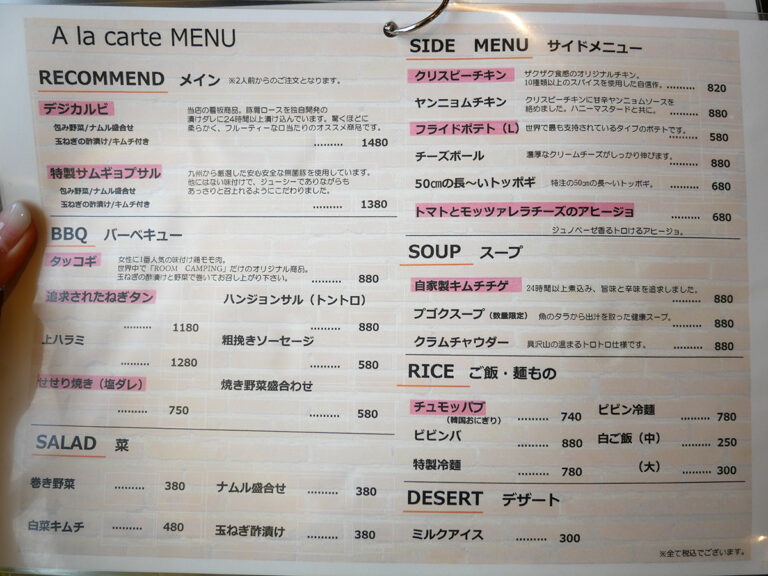 A la carte MENU
RECOMMEND メイン ※2人前からのご注文となります。
デジカルビ
当店の看板商品。豚肩ロースを独自開発の
漬けダレに24時間以上漬け込んでいます。驚くほどに
柔らかく、フルーティーな口当たりのオススメ商品です。
包み野菜/ナムル盛合せ
玉ねぎの酢漬け/キムチ付き
......... 1480
特製サムギョプサル
九州から厳選した安心安全な無菌豚を使用しています。
他にはない味付けで、ジューシーでありながらも
あっさりと召上れるようにこだわりました。
包み野菜/ナムル盛合せ
玉ねぎの酢漬け/キムチ付き
......... 1380
BBQ バーベキュー
タッコギ
女性に1番人気の味付け鶏モモ肉。
世界中で「ROOM CAMPING」だけのオリジナル商品。
玉ねぎの酢漬けと野菜で巻いてお召し上がり下さい。
......... 880
追求されたねぎタン
......... 1180
ハンジョンサル(トントロ)
......... 880
上ハラミ
......... 1280
粗挽きソーセージ
......... 580
せせり焼き(塩ダレ)
......... 750
焼き野菜盛合わせ
......... 580
SALAD 菜
巻き野菜 ......... 380
ナムル盛合せ ......... 380
白菜キムチ ......... 480
玉ねぎ酢漬け ......... 380
SIDE MENU サイドメニュー
クリスピーチキン
ザクザク食感のオリジナルチキン。
10種類以上のスパイスを使用した自信作。 ......... 820
ヤンニョムチキン
クリスピーチキンに甘辛ヤンニョムソースを
絡めました。ハニーマスタードと共に。 ......... 880
フライドポテト(L) 世界で最も支持されているタイプのポテトです。
......... 580
チーズボール 濃厚なクリームチーズがしっかり伸びます。
......... 880
50㎝の長〜いトッポギ 特注の50㎝の長〜いトッポギ。 ......... 680
トマトとモッツァレラチーズのアヒージョ ......... 680
ジュノベーゼ香るトロけるアヒージョ。
SOUP スープ
自家製キムチチゲ 24時間以上煮込み、旨味と辛味を追求しました。
......... 880
プゴクスープ(数量限定) 魚のタラから出汁を取った健康スープ。
......... 880
クラムチャウダー 具沢山の温まるトロトロ仕様です。 ......... 880
RICE ご飯・麺もの
チュモッパプ
(韓国おにぎり) ......... 740
ビビン冷麺 ......... 780
ビビンバ ......... 880
白ご飯(中) ......... 250
特製冷麺 ......... 780
(大) ......... 300
DESERT デザート
ミルクアイス ......... 300
※全て税込でございます。